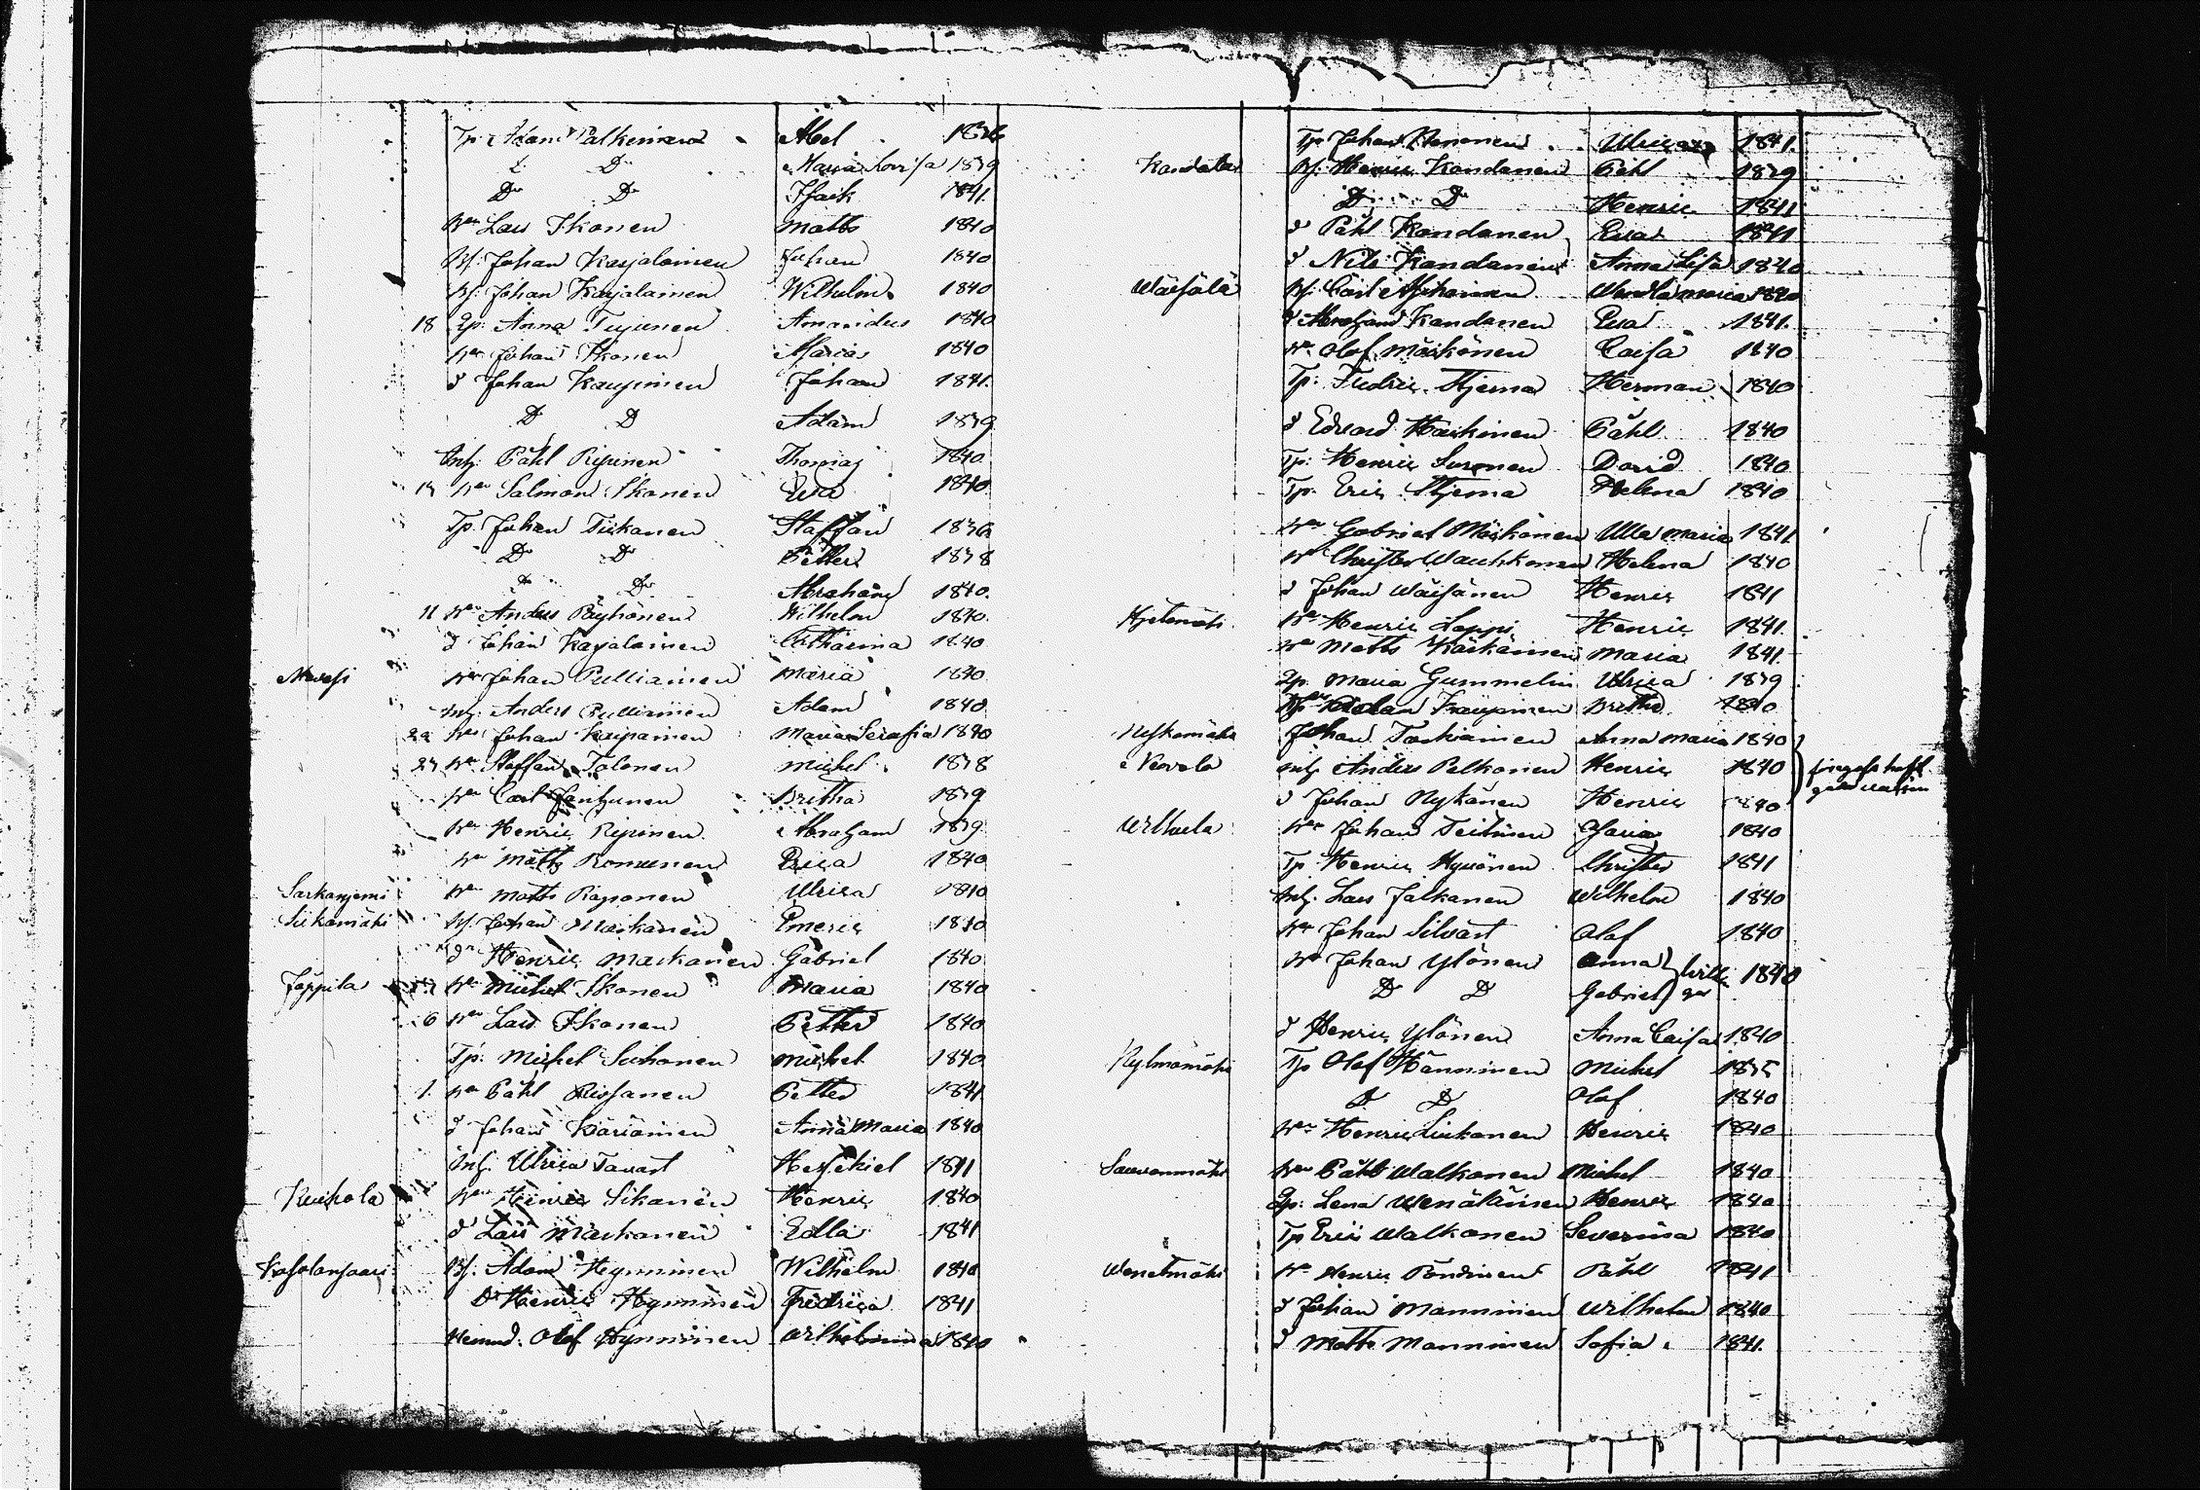 Tp. Adam Palkeinen Abel 1836
D Maria Lovisa 1839
D D Isack 1841.
Bn Lars Ikonen Matts 1840
Bf. Johan Karjalainen Johan 1840
Bf. Johan Karjalainen Wilhelm 1840
18 Ep. Anna Tujunen Amandus 1840
Bn Johan Ikonen Maria 1840
d Johan Kaupinen Johan 1841.
D D Adam 1839
Inh. Påhl Ripinen Thomas 1840
Bn Salmon Ikonen Eva 1840
Tp. Johan Tiikanen Staffan 1836
D D Petter 1838
D D Abraham 1840.
11 Bn Anders Pöyhönen Wilhelm 1840.
d Johan Karjalainen Catharina 1840
Bn Johan Pulliainen Maria 1840
Inh. Anders Pulliainen Adam 1840
Bn Johan Kaipainen Maria Serafia 1840
27 Bn Staffan Tolonen Michel 1838
Bn Carl Jantunen Britha 1839
Bn Henric Ripinen Abraham 1839
Bn Matts Romunen Erica 1840
Sarkanjemi Bn Matts Raponen Ulrica 1840
Siikamäki Bf. Johan Maskanen Emeric 1840
d Henric Maskanen Gabriel 1840
Jäppilä Bn Michel Ikonen Maria 1840
6 Bn Lars Ikonen Petter 1840
Tp. Michel Suhonen Michel 1840
1. Bn Påhl Rissanen Petter 1841
d Johan Kariainen Anna Maria 1840
Inh. Ulrica Tavast Hesekiel 1841
Bn Henric Sikanen Henric 1840
d Lars Maskanen Edla 1841
Bf. Adam Hynninen Wilhelm 1840
D Henric Hynninen Fredrica 1841
Hemmd. Olof Hynninen Wilhelmina 1840
Tp. Johan Ulrica 1841.
Kandala Bf. Henric Kandanen Påhl 1839
D D Henric 1841
d Påhl Kandanen Eva 1841
d Nils Kandanen Anna Lisa 1840
Wäisälä Bf. Carl Wendla Maria 1840
d Abraham Kandanen Eva 1841.
Bn Olof Mäskönen Caisa 1840
Tp. Fredric Stjerna Herman 1840
d Edvard Påhl 1840
Tp. Henric Suronen David 1840
Tp. Eric Stjerna Helena 1840
Bn Gabriel Mäskönen Ulla Maria 1841
Bn Christer Wauhkonen Helena 1840
d Johan Wäisänen Henric 1841
Bn Henric Lappi Henric 1841.
Bn Matts Käskäinen Maria 1841.
Ep. Maria Gummelin Ulrica 1839
Kaupinen Britha 1840
Johan Taskainen Anna Maria 1840
Neovola Inh. Anders Pelkonen Henric 1840
d Johan Nykänen Henric 1840
Bn Johan Teittinen Maria 1840
Tp. Henric Hyvönen Christer 1841
Inh. Lars Jalkanen Wilhelm 1840
Bn Johan Silvast Olof 1840
Bn Johan Ylönen Anna 1840
D D Gabriel
d Henric Ylönen Anna Caisa 1840
Tp. Olof Hänninen Michel 1835
D D Olof 1840
Bn Henric Liukonen Henric 1840
Bn Påhl Walkonen Michel 1840
Ep. Lena Wenäläinen Henric 1840
Tp. Eric Walkonen Severina 1840
Wenetmäki Bn Henric Pöndinen Påhl 1841
d Johan Manninen Wilhelm 1840
d Matts Manninen Sofia 1841.